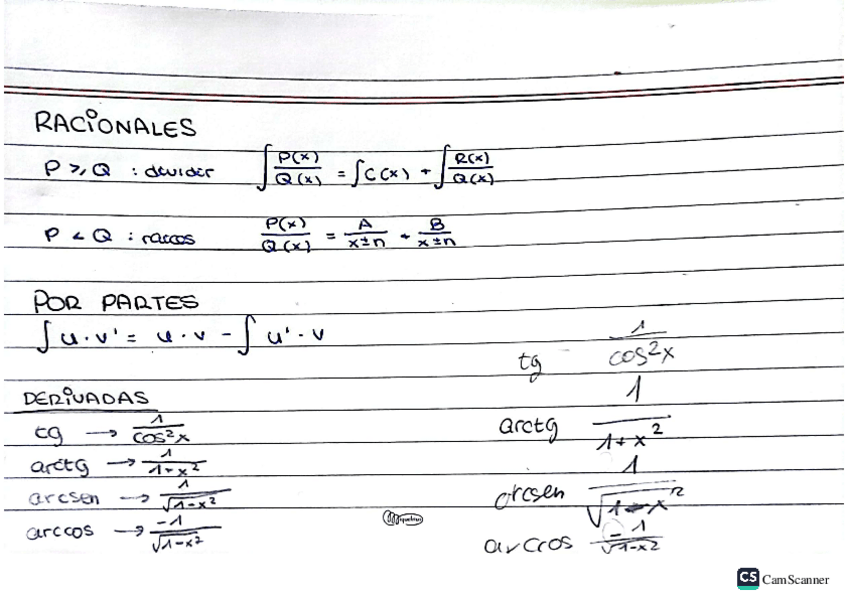 RACIONALES
P ≥ Q : dividir ∫ P(x)/Q(x) = ∫ C(x) + ∫ R(x)/Q(x)
P < Q : raíces P(x)/Q(x) = A/(x±n) + B/(x±n)
POR PARTES
∫ u · v' = u · v - ∫ u' · v
DERIVADAS
tg → 1/cos²x
arctg → 1/(1+x²)
arcsen → 1/√(1-x²)
arccos → -1/√(1-x²)
tg 1/cos²x
arctg 1/(1+x²)
arcsen 1/√(1-x²)
arccos -1/√(1-x²)
CS CamScanner